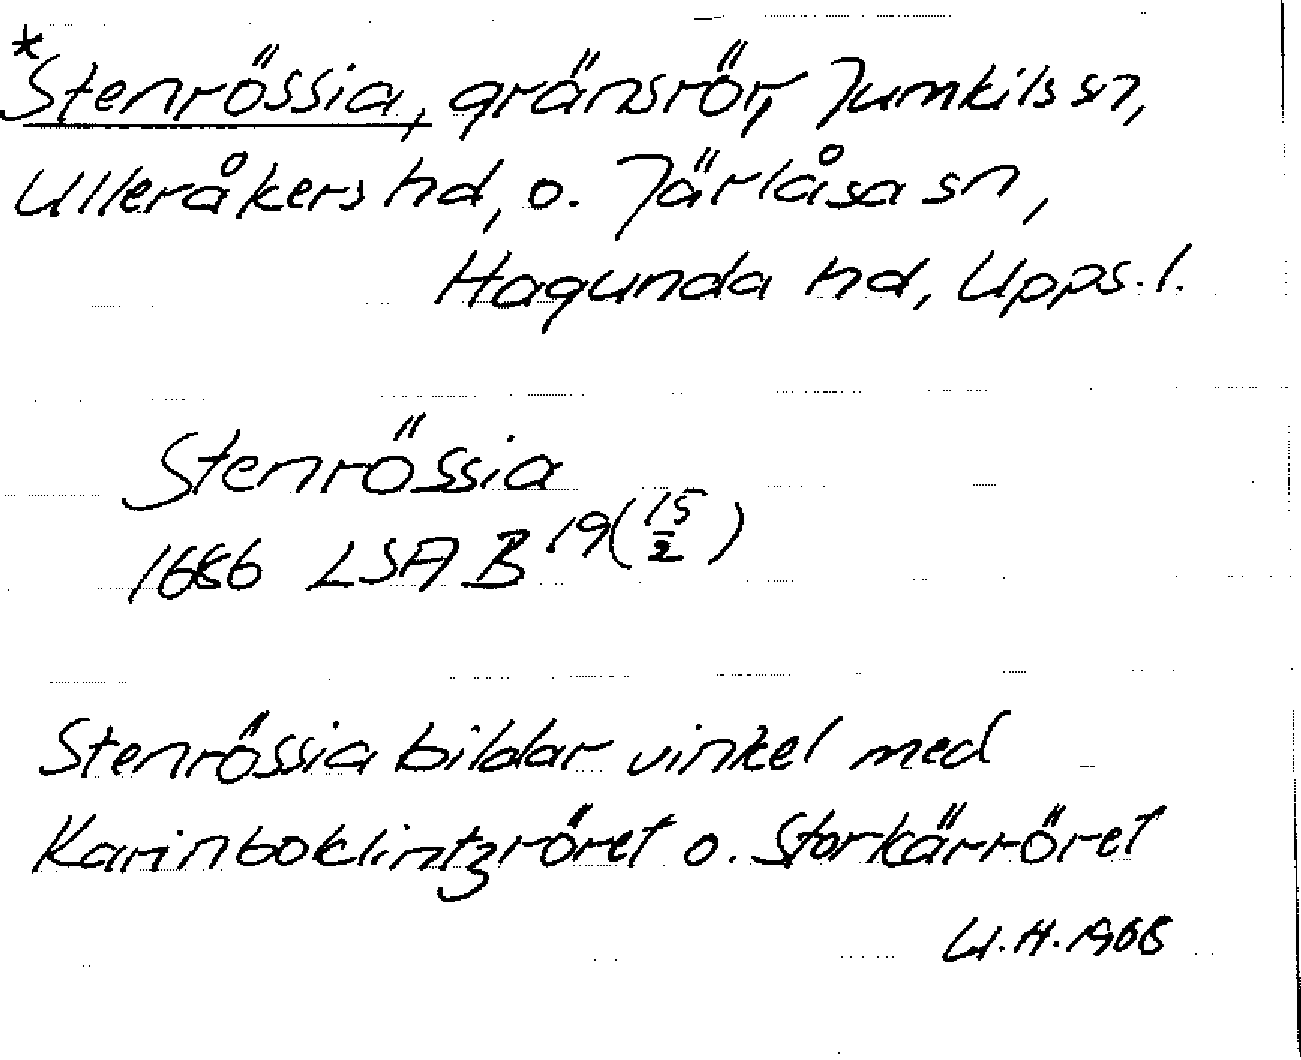 *Stenrössia, gränsrör, Jumkils sn,
Ulleråkers hd, o. Järlåsa sn,
Hagunda hd, Upps. l.
Stenrössia
1686 LSA B 19 (15/2)
Stenrössia bildar vinkel med
Karinboklintzröret o. Storkärröret
U.H. 1968